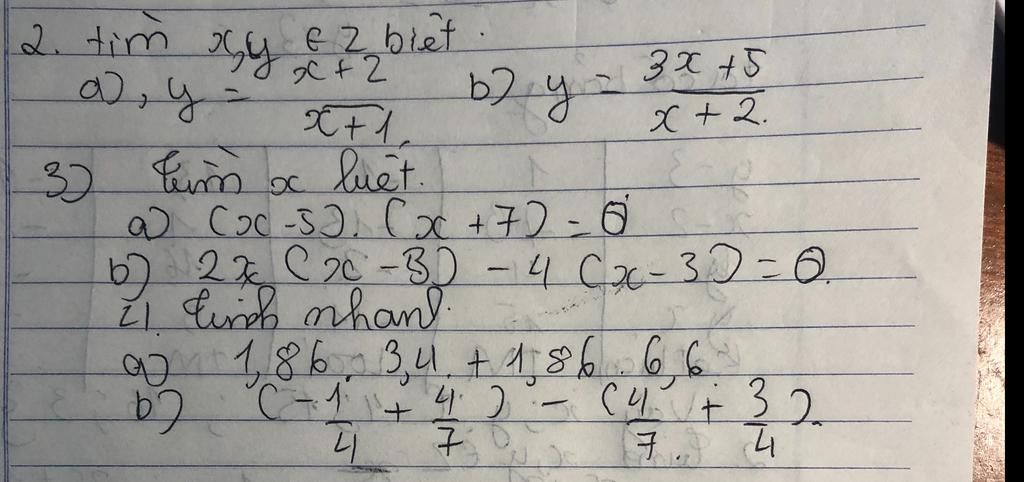 2. tìm x,y ∈ Z biết.
a), y = (x+2)/(x+1) b) y = (3x+5)/(x+2).
3) tìm x biết.
a) (x-5).(x+7)=0
b) 2x(x-3)-4(x-3)=0.
4. tính nhanh.
a) 1,86.3,4.+1,86.6,6.
b) (-1/4 + 4/7) - (4/7 + 3/4).